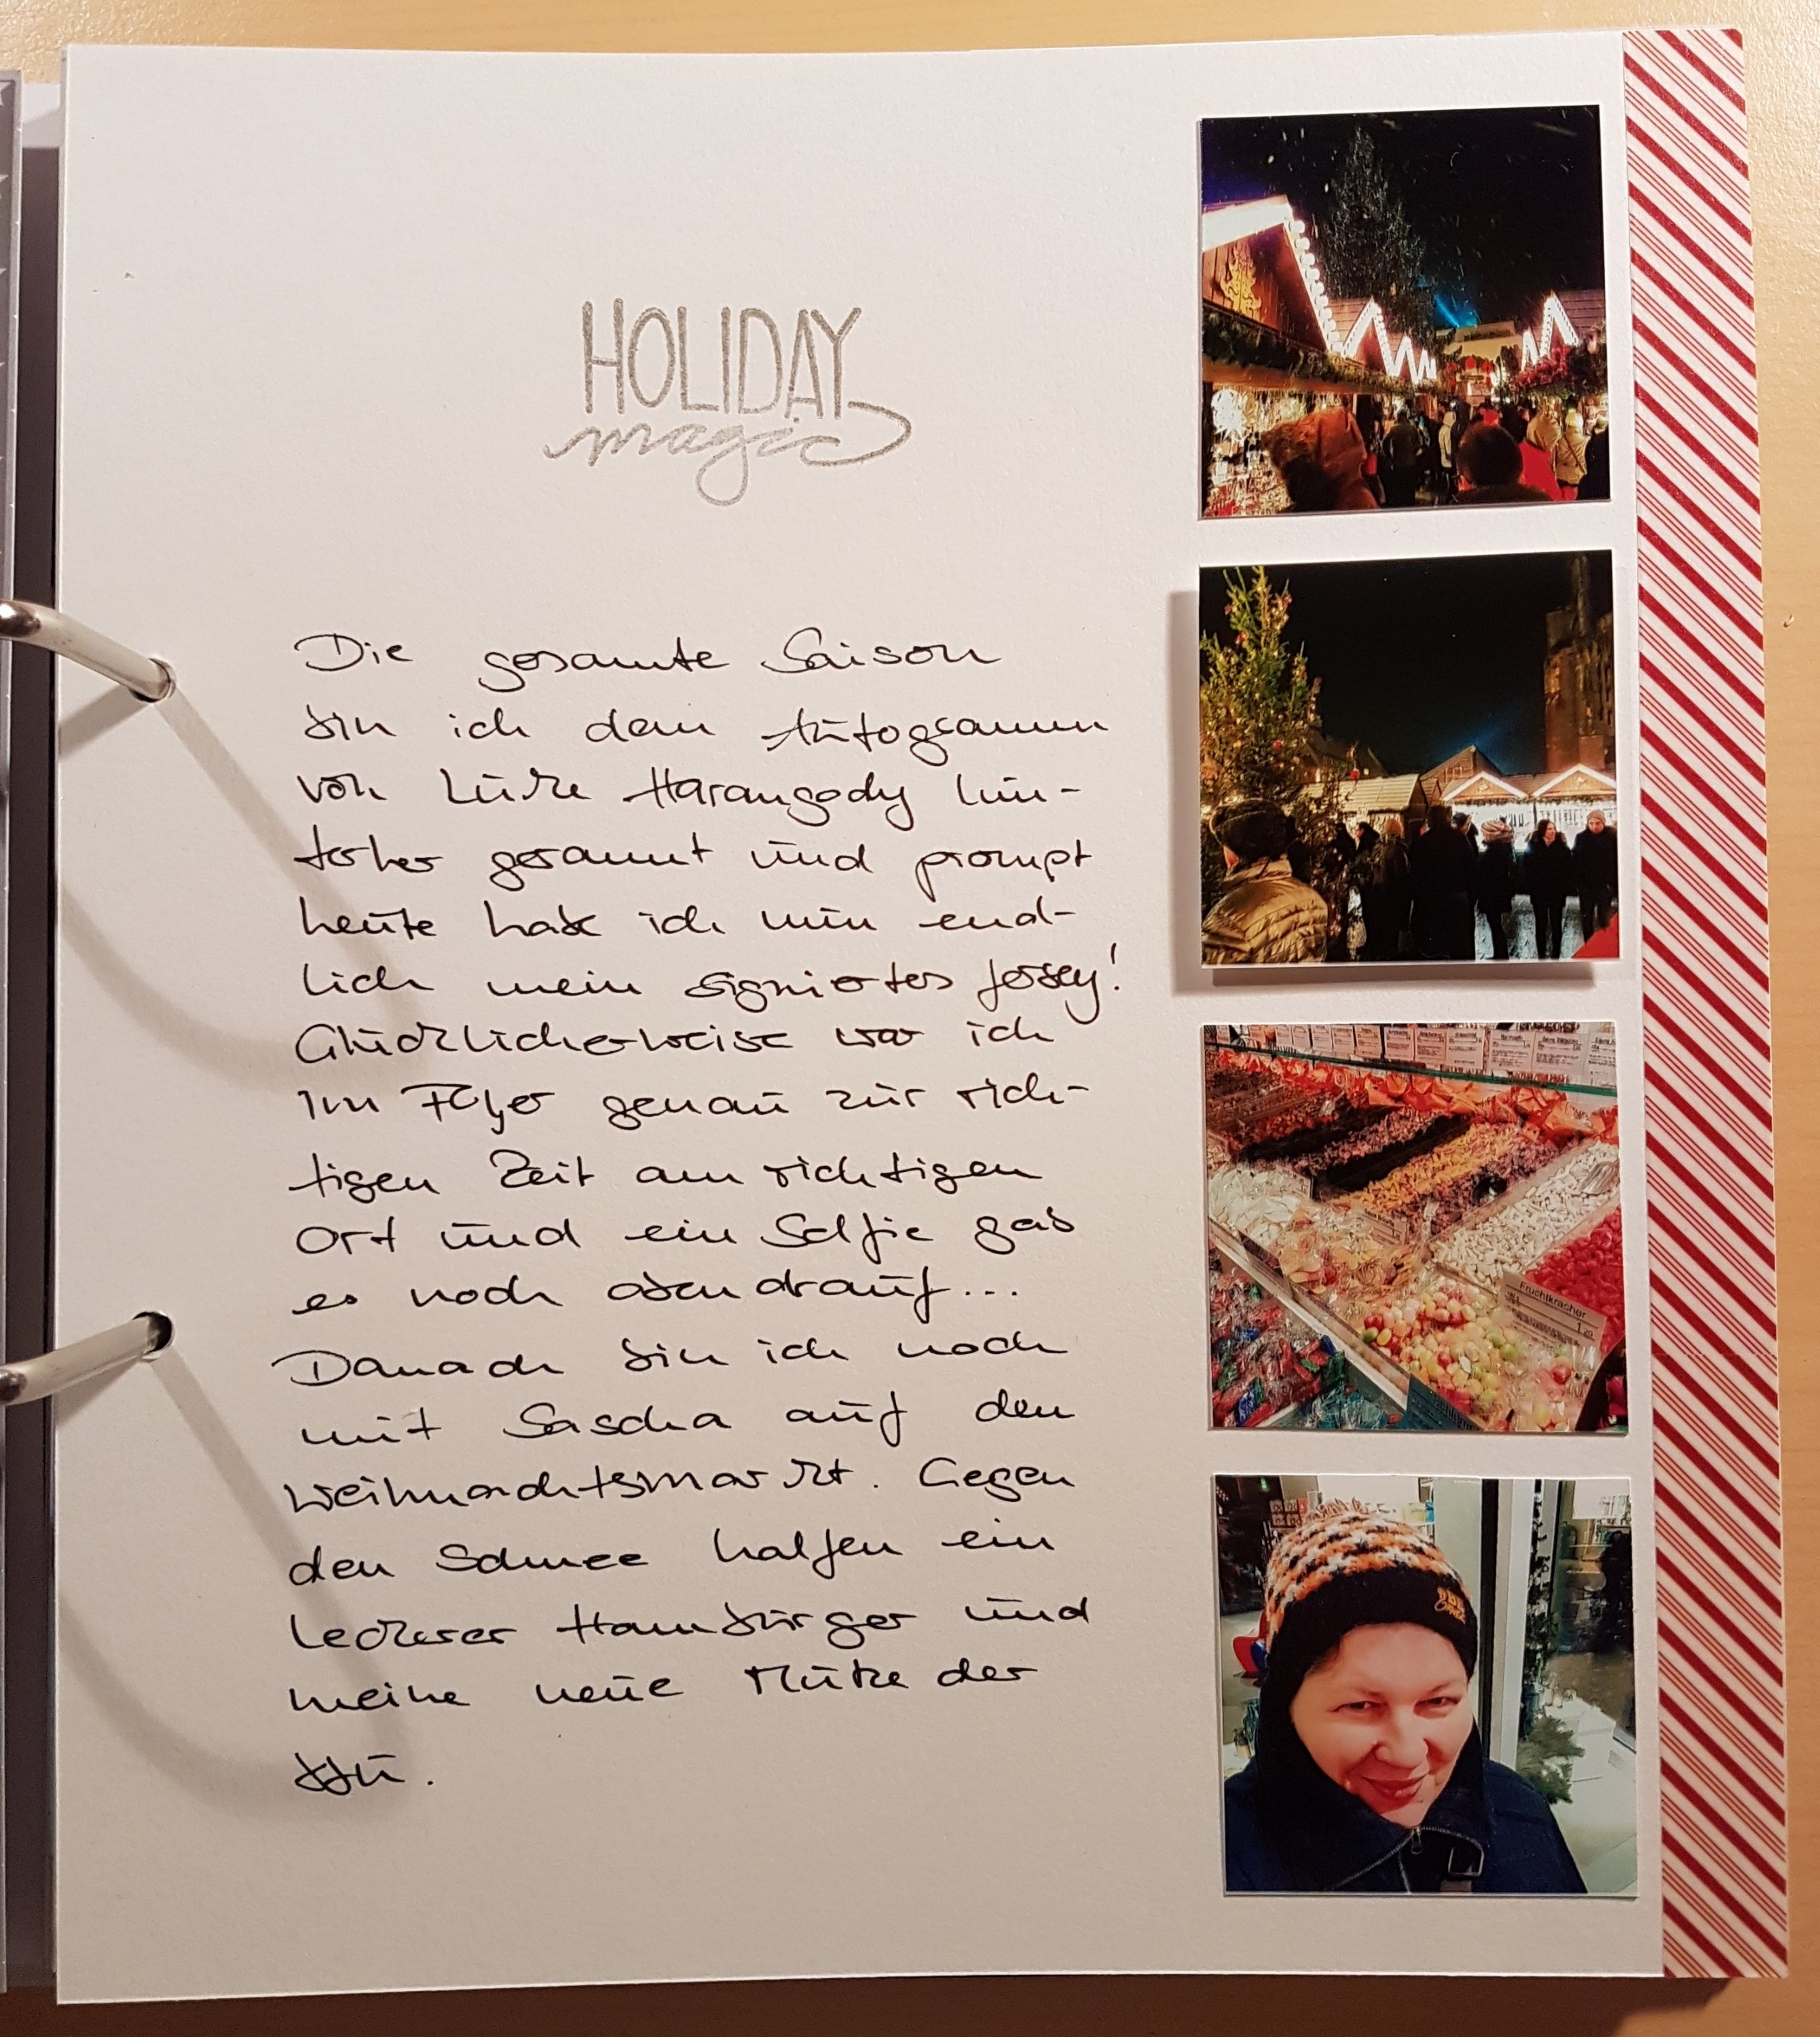 HOLIDAY
magic
Die gesamte Saison
bin ich dem Autogramm
von Luke Harangody hin-
terher gerannt und prompt
heute hab ich nun end-
lich mein signiertes Jersey!
Glücklicherweise war ich
im Foyer genau zur rich-
tigen Zeit am richtigen
Ort und ein Selfie gab
es noch oben drauf...
Danach bin ich noch
mit Sascha auf den
Weihnachtsmarkt. Gegen
den Schnee halfen ein
leckerer Hamburger und
meine neue Mütze der
bbu.
Fruchtkracher